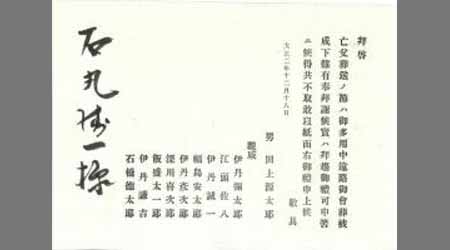 拝啓
亡父葬送ノ節ハ御多用中遠路御會葬被
成下難有奉拜謝候實ハ拜趨御禮可申筈
ニ候得共不取敢以紙面右御禮申上候
敬具
大正二年十二月十八日
男 田上源太郎
親戚
伊丹彌太郎
江頭佐八
伊丹誠一
福島安太郎
伊丹彦次郎
深川喜次郎
飯盛太一郎
伊丹謙吉
石橋徳太郎
石丸勝一様